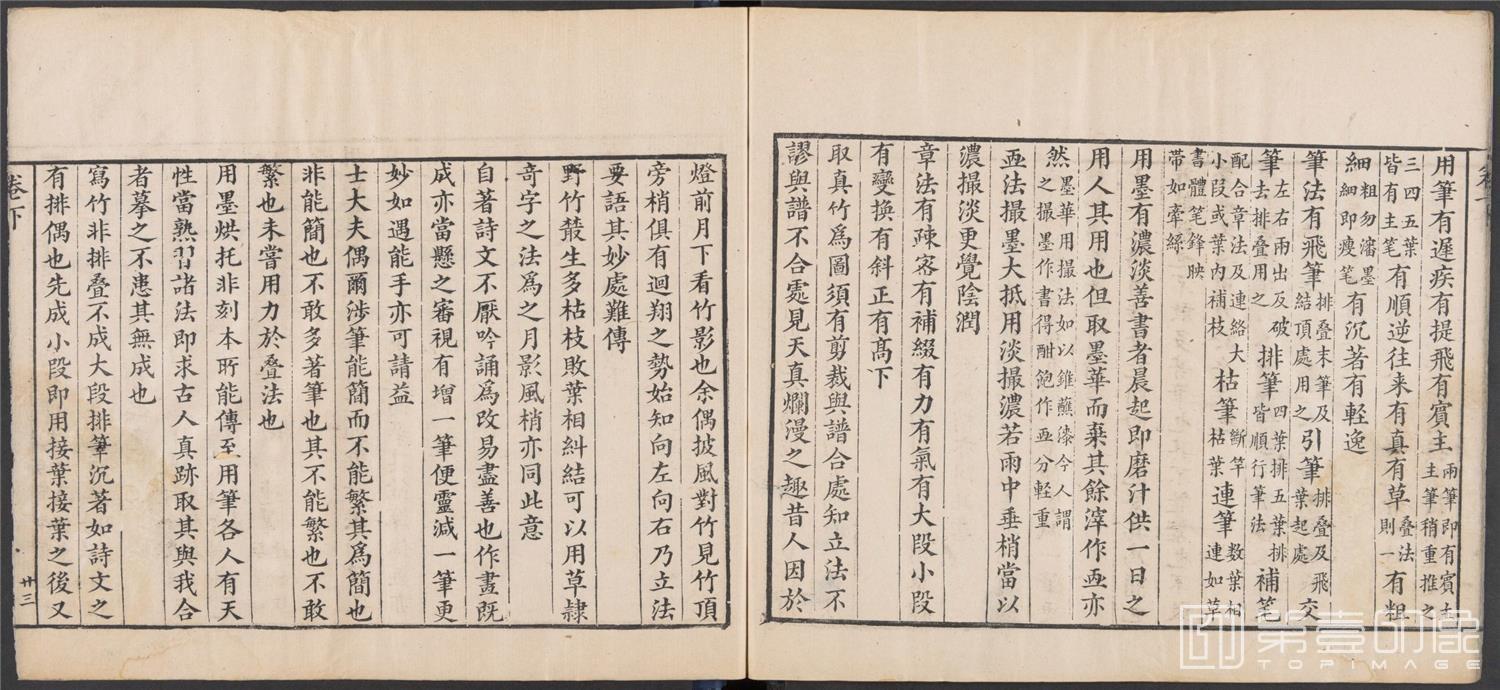 用筆有遲疾有提飛有賓主兩筆即有賓主主筆稍重推之
三四五葉皆有主笔有順逆往来有真有草叠法則一有粗
細粗勿瀋墨細即瘦笔有沉著有輕逸
筆法有飛筆排叠末筆及結頂處用之引筆排叠及飛葉起處交
筆左右兩出及破筆去排叠用之排筆四葉排五葉排皆順行筆法補笔
配合章法及連絡小叚或葉內補枝枯筆大斷竿枯葉連筆數葉相連如草
書體笔鋒映帶如牽絲
用墨有濃淡善書者晨起即磨汁供一日之
用人其用也但取墨華而棄其餘滓作画亦
然墨華用撮法如以錐蘸漆今人謂之撮墨作書得酣飽作画分輕重
画法撮墨大抵用淡撮濃若雨中垂梢當以
濃撮淡更覺陰潤
章法有疎密有補綴有力有氣有大段小段
有變換有斜正有髙下
取真竹爲圖須有剪裁與譜合處知立法不
謬與譜不合處見天真爛漫之趣昔人因於
燈前月下看竹影也余偶披風對竹見竹頂
旁梢俱有迴翔之勢始知向左向右乃立法
要語其妙處難傳
野竹叢生多枯枝敗葉相糾結可以用草隸
奇字之法爲之月影風梢亦同此意
自著詩文不厭吟誦爲改易盡善也作畫既
成亦當懸之審視有增一筆便靈減一筆更
妙如遇能手亦可請益
士大夫偶爾涉筆能簡而不能繁其爲簡也
非能簡也不敢多著筆也其不能繁也不敢
繁也未嘗用力於叠法也
用墨烘托非刻本所能傳至用筆各人有天
性當熟習諸法即求古人真跡取其與我合
者摹之不患其無成也
寫竹非排叠不成大段排筆沉著如詩文之
有排偶也先成小段即用接葉接葉之後又
卷下
廿三
第壹印像
TOPIMAGE